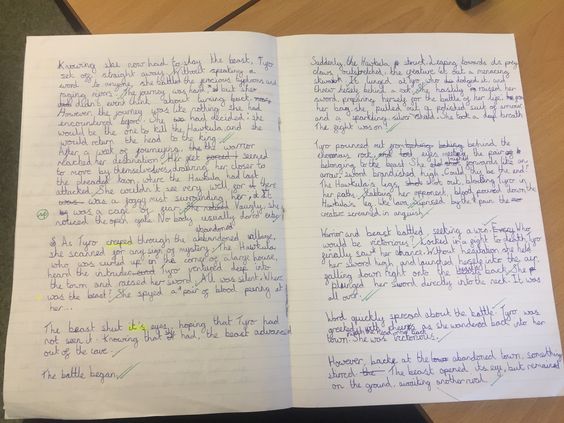 Knowing she now had to slay the beast, Tyro
set off straight away. Without speaking a
word to anyone, she battled the ferocious typhoons and
raging rivers. The journey was hard but she
didn't even think about turning back.
However, the journey was like nothing she had
encountered before. She had decided: she
would be the one to kill the Hawkula and she
would return the head to the king.
After a week of journeying, the warrior
reached her destination. Her feet seemed
to move by themselves, drawing her closer to
the town where the Hawkula had last
attacked. She couldn't see very well for there
was a foggy mist surrounding her. It
was a cage of fear. Vaguely, she
noticed the open gate. No body usually dared enter
abandoned
As Tyro creped through the village,
she scanned for any sign of mystery. The Hawkula,
who was curled up in the corner of a large house,
heard the intruder. Tyro ventured deep into
the town and raised her sword. All was silent. Where
was the beast? She spyed a pair of blood peering at
her...
The beast shut it's eyes, hoping that Tyro had
not seen it. Knowing that she had, the beast advanced
out of the cave.
The battle began.
Suddenly, the Hawkula struck. Leaping towards its prey,
claws outstretched, the creature let out a menacing
It lunged at Tyro, who dodged it and
threw herself behind a rock. She hastily raised her
sword, preparing herself for the battle of her life.
her bag she pulled out a polished suit of armour
and a sparkling, silver shield. She took a deep breath.
The fight was on.
Tyro pounced out from behind the
rock, eyes meeting the pair
belonging to the beast. She forwards like an
arrow, sword brandished high. Could this be the end?
The Hawkula's legs shot out, blocking Tyro in
her path. Stabbing her opponent, blood poured down the
Hawkula's leg like lava. by the pain the
creature screamed in anguish.
Warrior and beast battled, seeking a win. Who
would be victorious? Locked in a fight to death, Tyro
finally saw her chance. Without hesitation she held
her sword high and launched herself into the air,
falling down right onto the back. She
plunged her sword directly into the neck. It was
all over.
Word quickly spread about the battle. Tyro was
greeted with cheers as she wandered back into her
town. She was victorious.
However, back at the abandoned town, something
stirred. The beast opened its eye, but remained
on the ground, awaiting another rival.